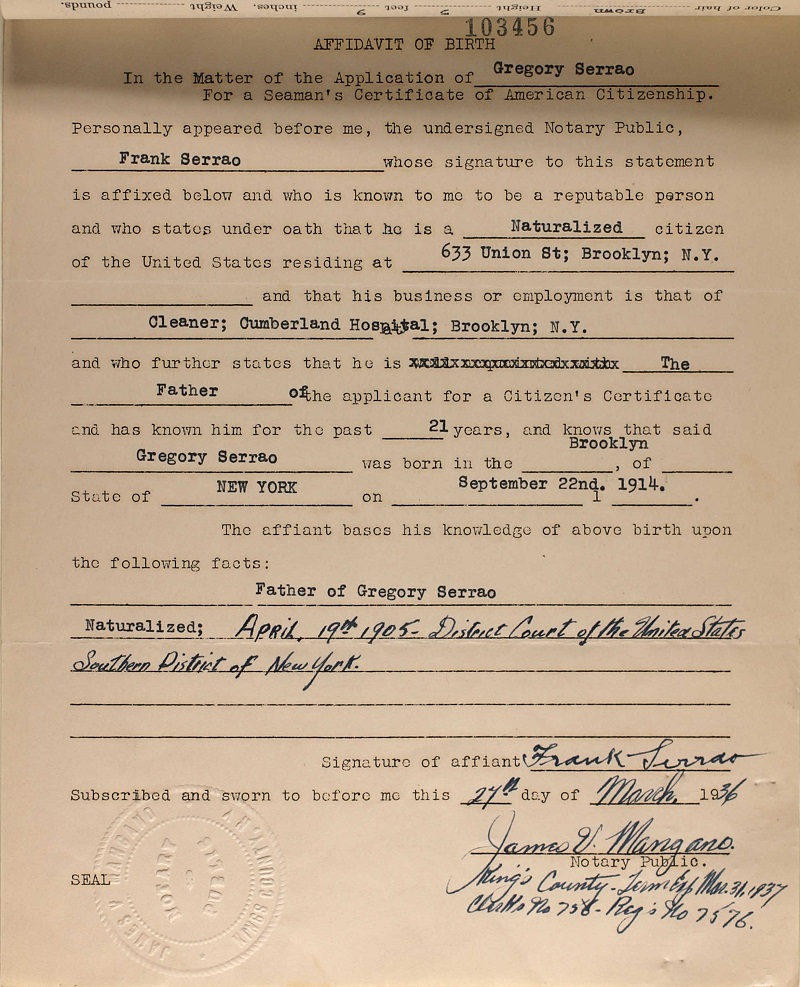 Color of hair Brown Height 5 feet 5 inches. Weight pounds.
103456
AFFIDAVIT OF BIRTH
In the Matter of the Application of Gregory Serrao
For a Seaman's Certificate of American Citizenship.
Personally appeared before me, the undersigned Notary Public,
Frank Serrao whose signature to this statement
is affixed below and who is known to me to be a reputable person
and who states under oath that he is a Naturalized citizen
of the United States residing at 633 Union St; Brooklyn; N.Y.
and that his business or employment is that of
Cleaner; Cumberland Hospital; Brooklyn; N.Y.
and who further states that he is The
Father of the applicant for a Citizen's Certificate
and has known him for the past 21 years, and knows that said
Gregory Serrao was born in the Brooklyn, of
State of NEW YORK on September 22nd. 1 1914.
The affiant bases his knowledge of above birth upon
the following facts:
Father of Gregory Serrao
Naturalized; April, 19th 1905- District Court of the United States
Southern District of New York.
Signature of affiant Frank Serrao
Subscribed and sworn to before me this 27th day of March, 1936
James V. Mangano.
Notary Public.
SEAL
King's County - Term Exp Mar. 31, 1937
Clerk's No 758 - Reg's No 7576.
JAMES V. MANGANO
NOTARY PUBLIC
KINGS COUNTY N.Y.